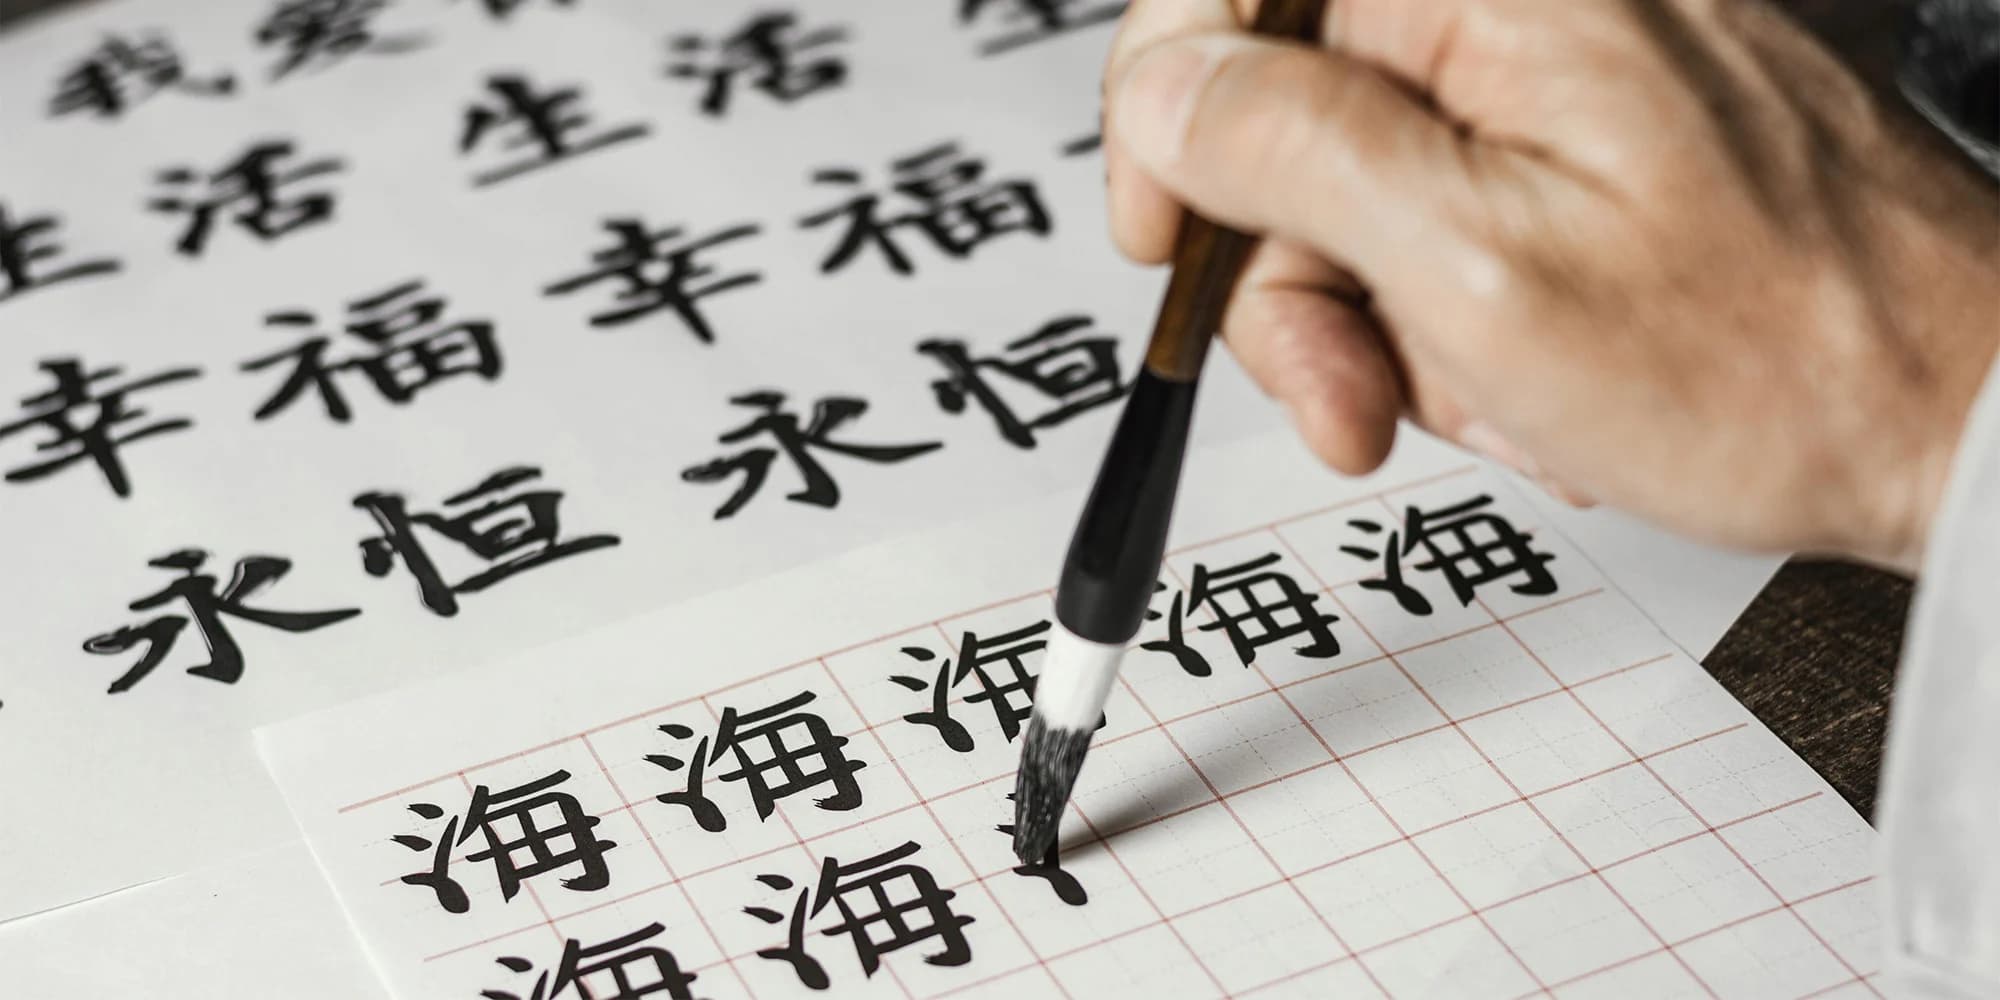 我爱
生活 生活 生
幸福 幸福
永恒 永恒
海 海 海 海 海
海 海